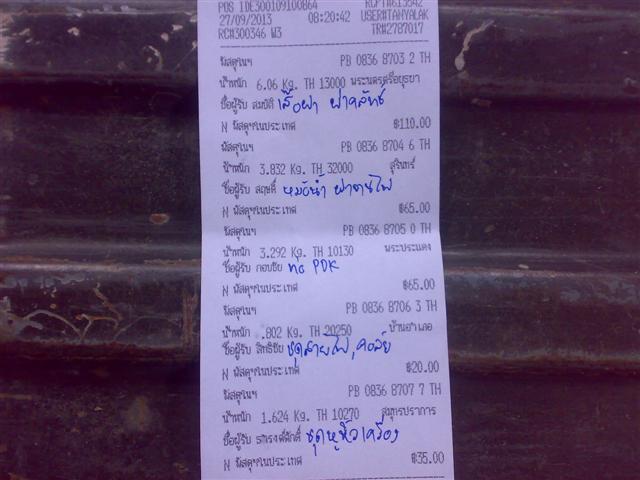 POS ID E300109100864 RCPT#615542
27/09/2013 08:20:42 USER#TANYALAK
RC#300346 W3 TR#2787017
พัสดุในฯ PB 0836 8703 2 TH
น้ำหนัก 6.06 Kg. TH 13000 พระนครศรีอยุธยา
ชื่อผู้รับ สมบัติ เสื้อฝา ฝาคลัทช์
N พัสดุฯในประเทศ ฿110.00
พัสดุในฯ PB 0836 8704 6 TH
น้ำหนัก 3.832 Kg. TH 32000 สุรินทร์
ชื่อผู้รับ สฤษดิ์ หม้อน้ำ
N พัสดุฯในประเทศ ฿65.00
พัสดุในฯ PB 0836 8705 0 TH
น้ำหนัก 3.292 Kg. TH 10130 พระประแดง
ชื่อผู้รับ กอบชัย ท่อ PDK
N พัสดุฯในประเทศ ฿65.00
พัสดุในฯ PB 0836 8706 3 TH
น้ำหนัก .802 Kg. TH 20250 บ้านอำเภอ
ชื่อผู้รับ สิทธิชัย ชุดสายไฟ,คอล์ย
N พัสดุฯในประเทศ ฿20.00
พัสดุในฯ PB 0836 8707 7 TH
น้ำหนัก 1.624 Kg. TH 10270 สมุทรปราการ
ชื่อผู้รับ ณรงค์ศักดิ์ ชุดหูหิ้วเครื่อง
N พัสดุฯในประเทศ ฿35.00